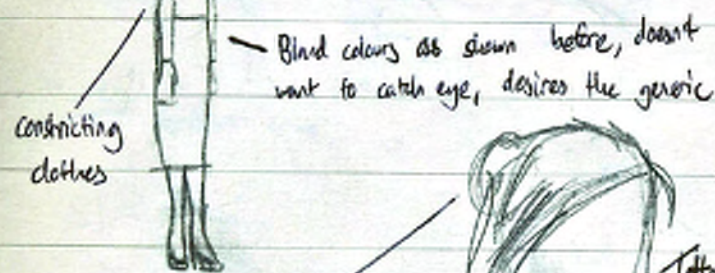 Bland colours as shown before, doesn't
want to catch eye, desires the generic
constricting
clothes